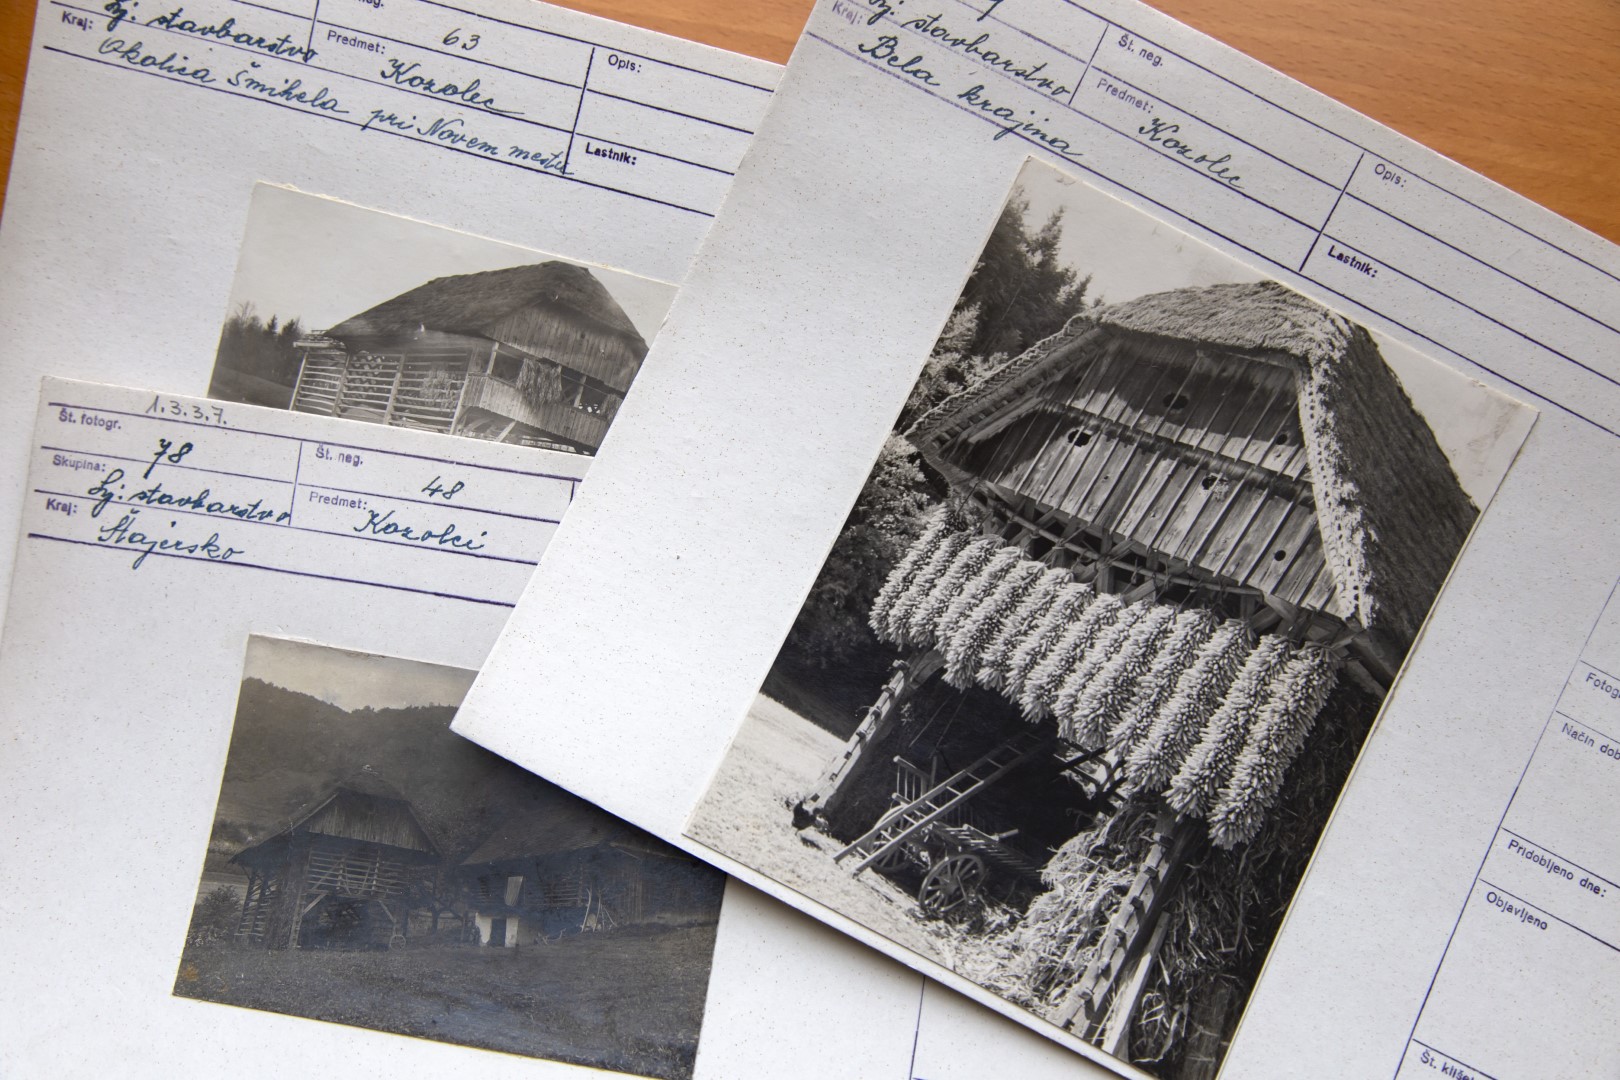 neg.
63
Lj. stavbarstvo
Predmet: Kozolec
Opis:
Kraj: Okolica Šmihela pri Novem mestu
Lastnik:
Št. neg.
Lj. stavbarstvo
Predmet: Kozolec
Opis:
Kraj: Bela krajina
Lastnik:
Načín dob
Pridobljeno dne:
Objavljeno
1.3.3.7.
Št. fotogr. 78
Št. neg. 48
Skupina: Lj. stavbarstvo
Predmet: Kozolci
Kraj: Štajersko